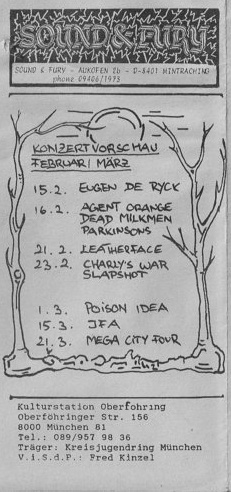 SOUND & FURY
SOUND & FURY - AUKOFEN 2b - D-8401 MINTRACHING
phone 09406/1973
KONZERTVORSCHAU
FEBRUAR/MÄRZ
15.2. EUGEN DE RYCK
16.2. AGENT ORANGE
DEAD MILKMEN
PARKINSONS
21.2. LEATHERFACE
23.2. CHARLY'S WAR
SLAPSHOT
1.3. POISON IDEA
15.3. JFA
21.3. MEGA CITY FOUR
Kulturstation Oberföhring
Oberföhringer Str. 156
8000 München 81
Tel.: 089/957 98 36
Träger: Kreisjugendring München
V.i.S.d.P.: Fred Kinzel